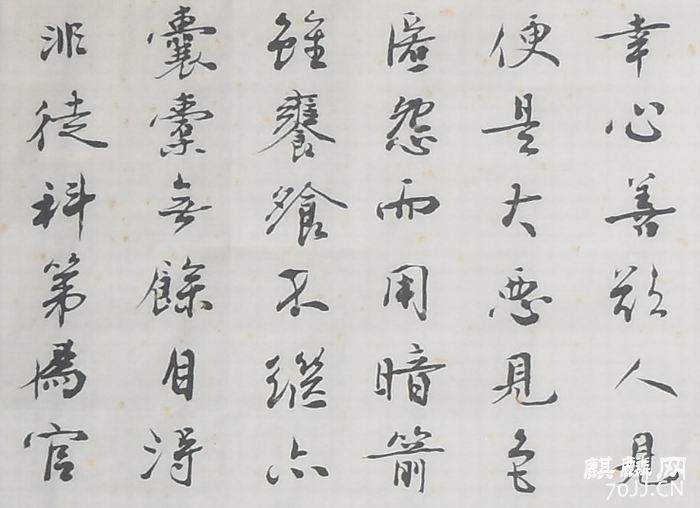 幸心善欲人見
便是大惡見色
匿怨而用暗箭
雖饔飧不繼亦
囊橐無餘自得
非徒科第為官
麒麟网
70JJ.CN